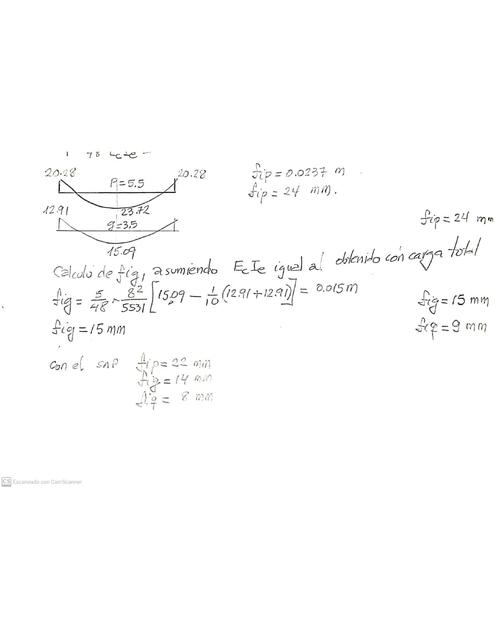 20.28 P=5.5 20.28
23.72
12.91 g=3.5
15.09
fip = 0.0237 m
fip = 24 mm.
fip = 24 mm
Cálculo de fig, asumiendo EcIe igual al obtenido con carga total
fig = 5/48 · 8²/5531 [15.09 - 1/10 (12.91+12.91)] = 0.015m
fig = 15 mm
fig = 15 mm
fiq = 9 mm
con el SAP fip = 22 mm
fig = 14 mm
fiq = 8 mm
CS Escaneado con CamScanner